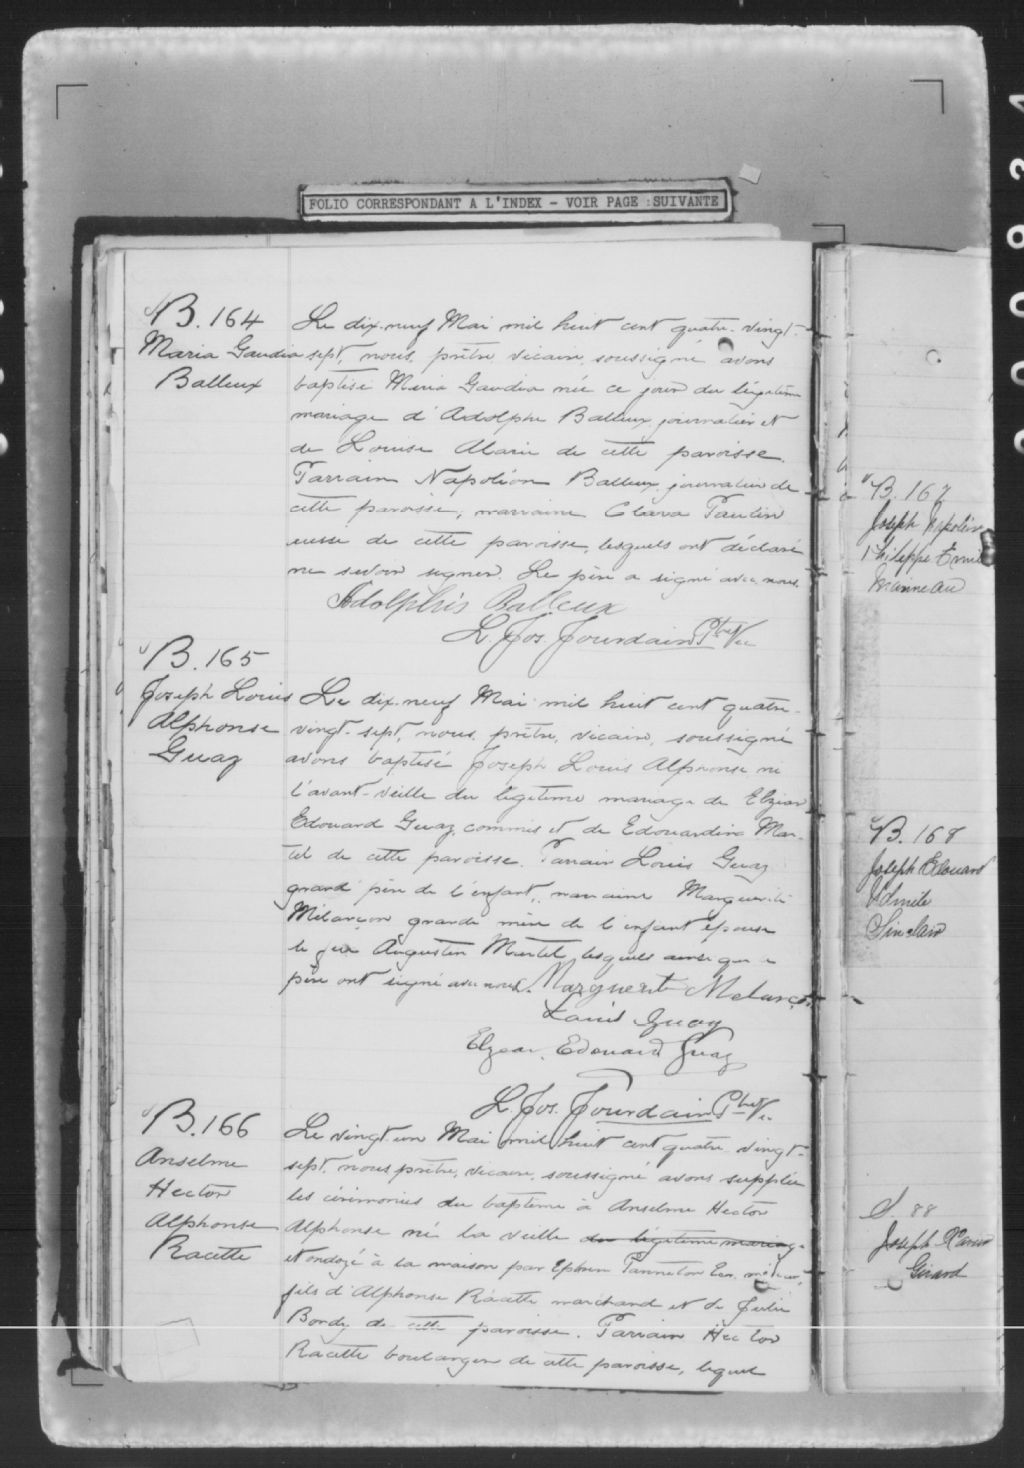 FOLIO CORRESPONDANT A L'INDEX - VOIR PAGE :SUIVANTE
B. 164
Maria Gaudia
Balleux
Le dix-neuf Mai mil huit cent quatre-vingt-
sept, nous, prêtre, vicaire, soussigné avons
baptisé Maria Gaudia née ce jour du légitime
mariage d'Adolphe Balleux journalier et
de Louise Alarie de cette paroisse.
Parrain Napoléon Balleux journalier de
cette paroisse, marraine Clara Paulin
de cette paroisse, lesquels ont déclaré
ne savoir signer. Le père a signé avec nous.
Adolphis Balleux
L. Jos. Jourdain Ptre Vic
B. 165
Joseph Louis
Alphonse
Guay
Le dix-neuf Mai mil huit cent quatre-
vingt-sept, nous, prêtre, vicaire, soussigné
avons baptisé Joseph Louis Alphonse né
l'avant-veille du légitime mariage de Elzéar
Edouard Guay commis et de Edouardine Mar-
tel de cette paroisse. Parrain Louis Guay
grand père de l'enfant, marraine Marguerite
Mélançon grande mère de l'enfant épouse
de feu Augustin Martel, lesquels ainsi que le
père ont signé avec nous. Marguerite Melançon
Louis Guay
Elzear Edouard Guay
L. Jos. Jourdain Ptre Vic.
B. 166
Anselme
Hector
Alphonse
Racette
Le vingt-un Mai mil huit cent quatre-vingt-
sept, nous prêtre, vicaire, soussigné avons supplée
les cérémonies du baptême à Anselme Hector
Alphonse né la veille du légitime mariage
et ondoyé à la maison par Ephrem Panneton Ecr. médecin,
fils d'Alphonse Racette marchand et de Julie
Bondy de cette paroisse. Parrain Hector
Racette boulanger de cette paroisse, lequel
B. 167
Joseph Napoléon
Philippe Emile
Marineau
B. 168
Joseph Edouard
Sinclair
S. 88
Joseph
Girard